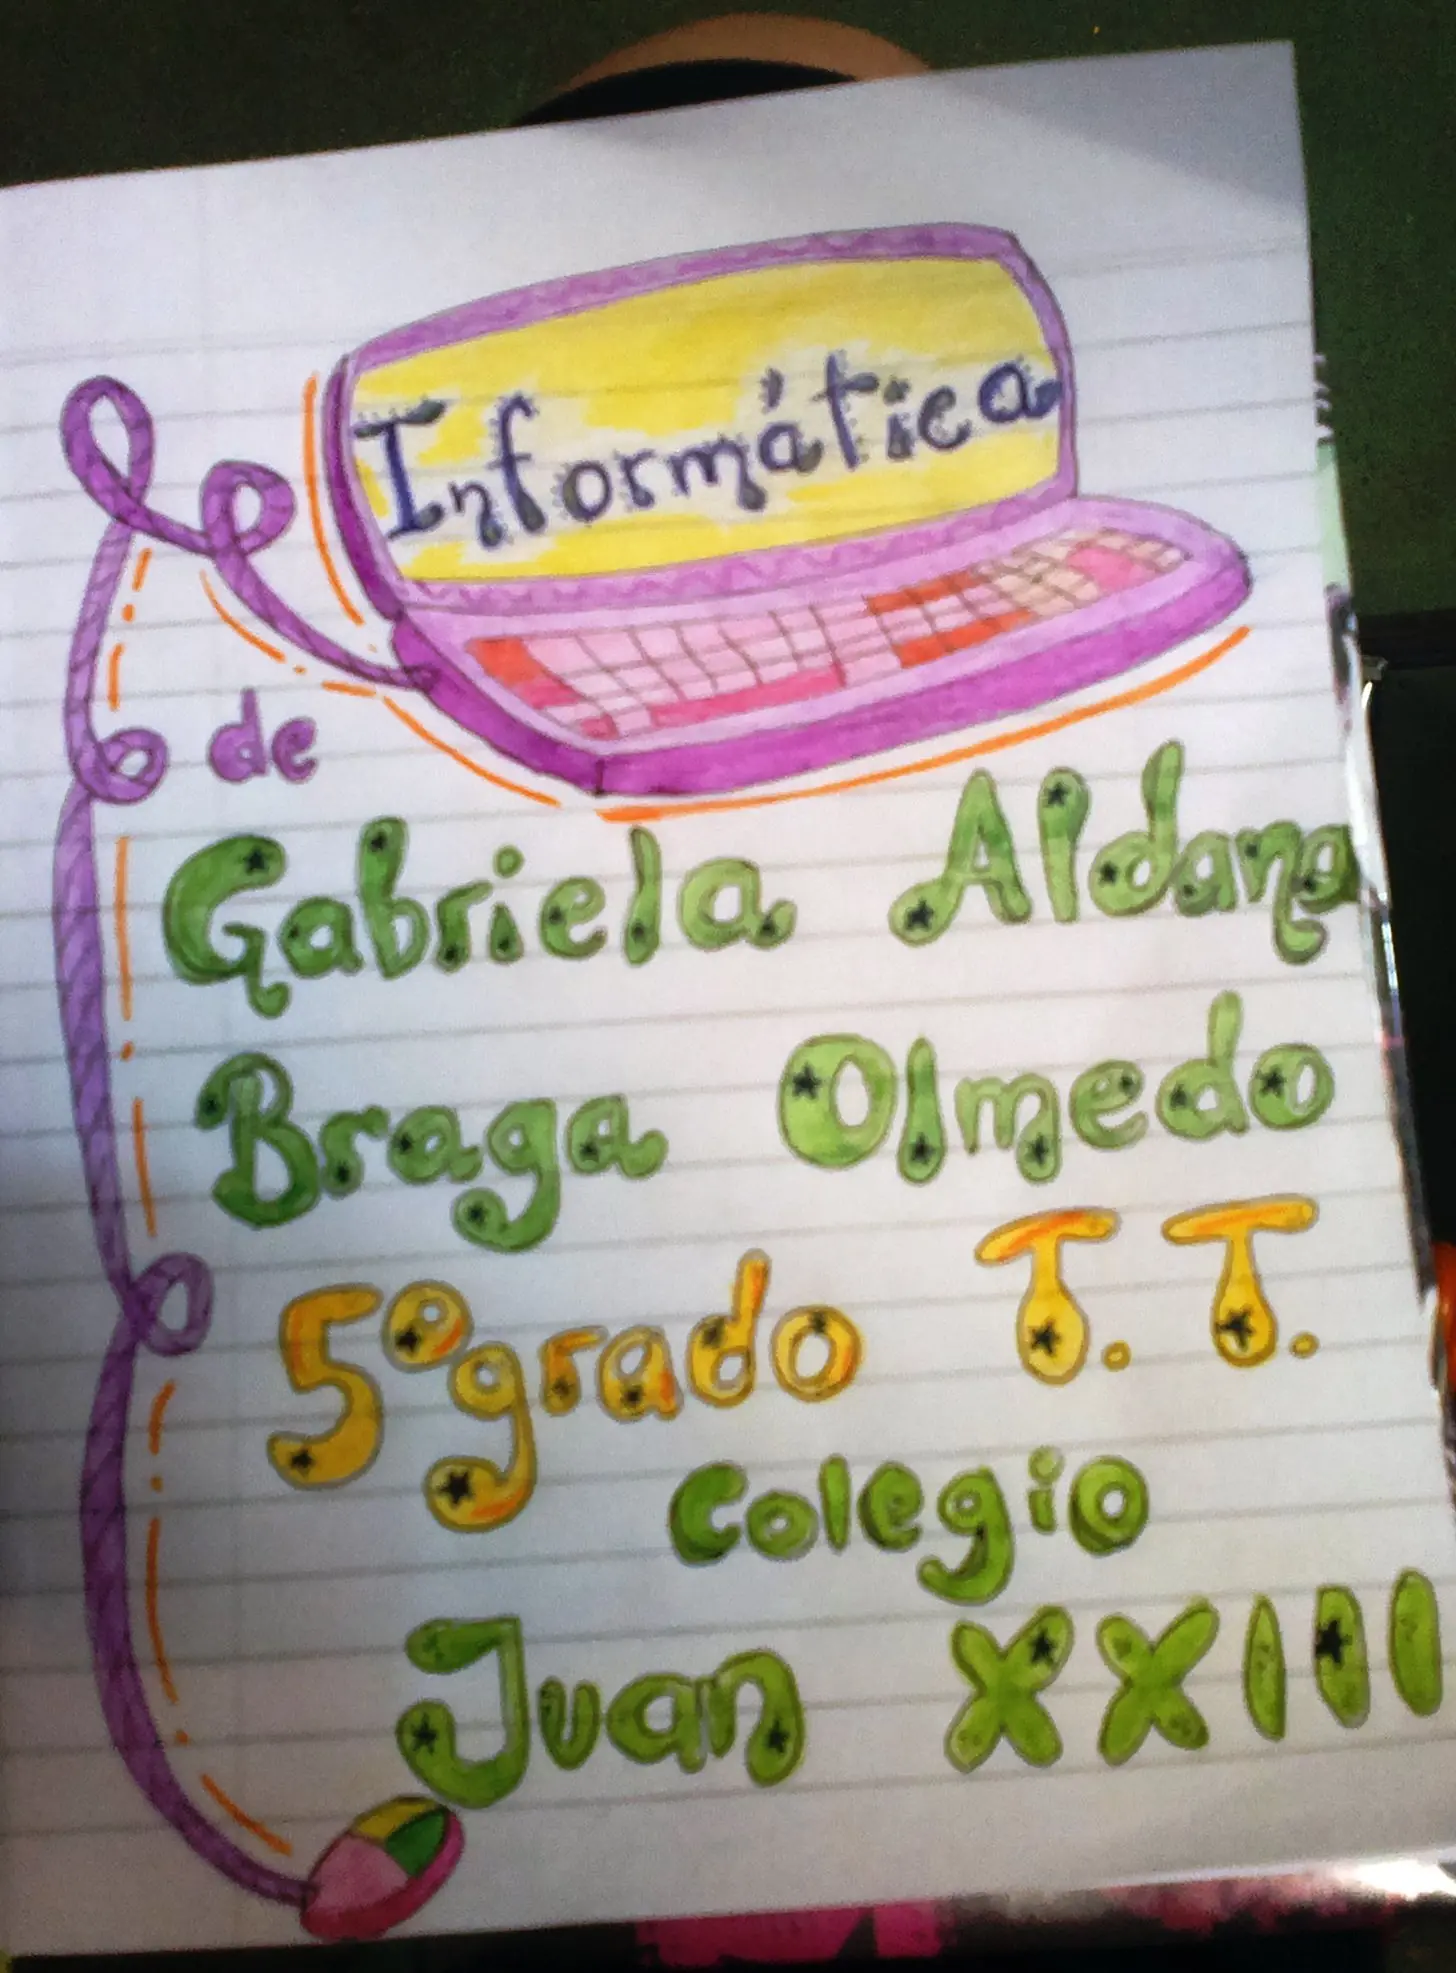 Informática
de
Gabriela Aldana
Braga Olmedo
5º grado T. T.
Colegio
Juan XXIII